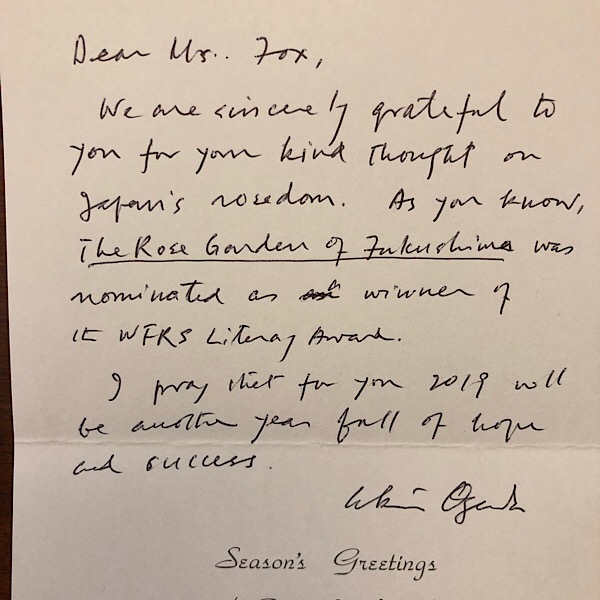 Dear Ms.. Fox,
We are sincerely grateful to
you for your kind thought on
Japan's rosedom. As you know,
The Rose Garden of Fukushima was
nominated as winner of
WFRS Literary Award.
I pray that for you 2019 will
be another year full of hope
and success.
Season's Greetings